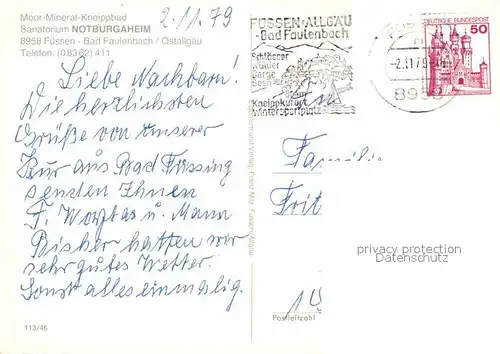 Moor-Mineral-Kneippbad
Sanatorium NOTBURGAHEIM
8958 Füssen - Bad Faulenbach / Ostallgäu
Telefon: (0 83 62) 411
2.11.79
Liebe Nachbarn!
Die herzlichsten
Grüße von unserer
Kur aus Bad Füssing
senden Ihnen
F. u. Mann
Bisher hatten wir
sehr gutes Wetter.
Sonst alles einmalig.
113/46
FÜSSEN · ALLGÄU
-Bad Faulenbach
Schlösser
Wälder
Berge
Seen
Kneippkurort
Wintersportplatz
-2.11.79
8958
DEUTSCHE BUNDESPOST
50
An
Familie
Frit
privacy protection
Datenschutz
Postleitzahl